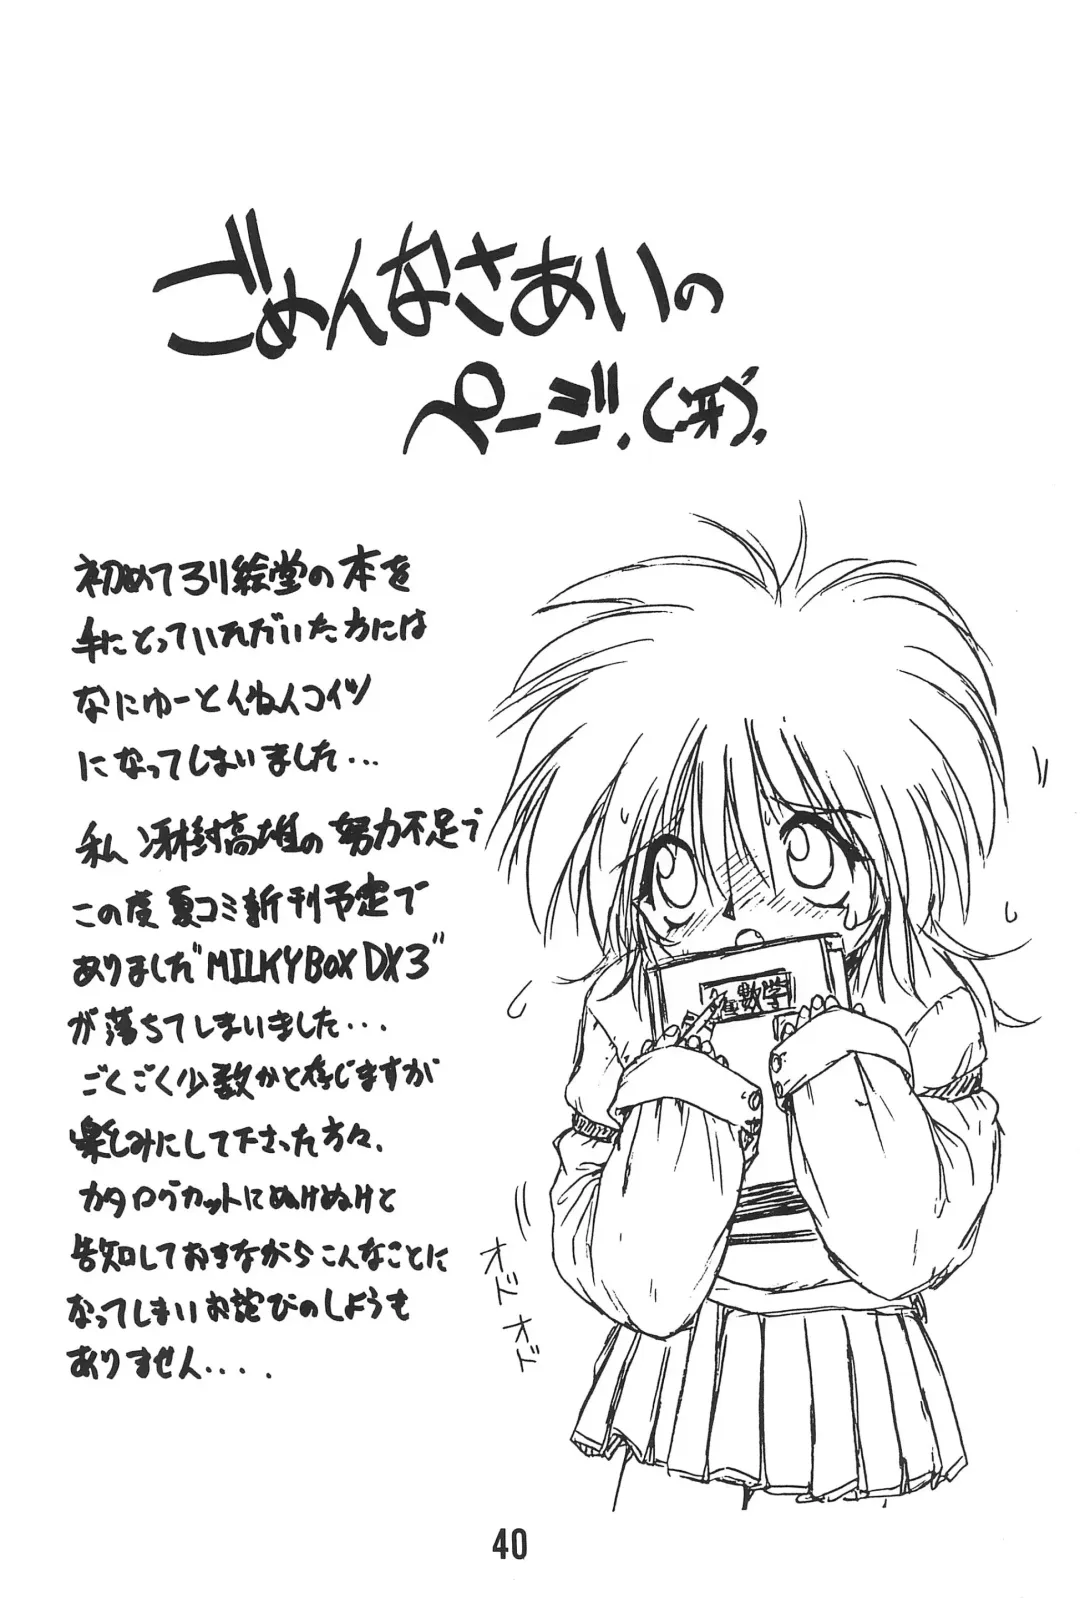 ごめんなさあいの
ページ.(牙).
初めてろり絵堂の本を
手にとっていただいた方には
なにゆーとんねんコイツ
になってしまいました...
私 冴樹高雄の努力不足で
この度夏コミ新刊予定で
ありました"MILKYBOX DX3"
が落ちてしまいました...
ごくごく少数かと存じますが
楽しみにして下さった方々、
カタログカットにぬけぬけと
告知しておきながらこんなことに
なってしまいお詫びのしようも
ありません....
数学
オドオド
40